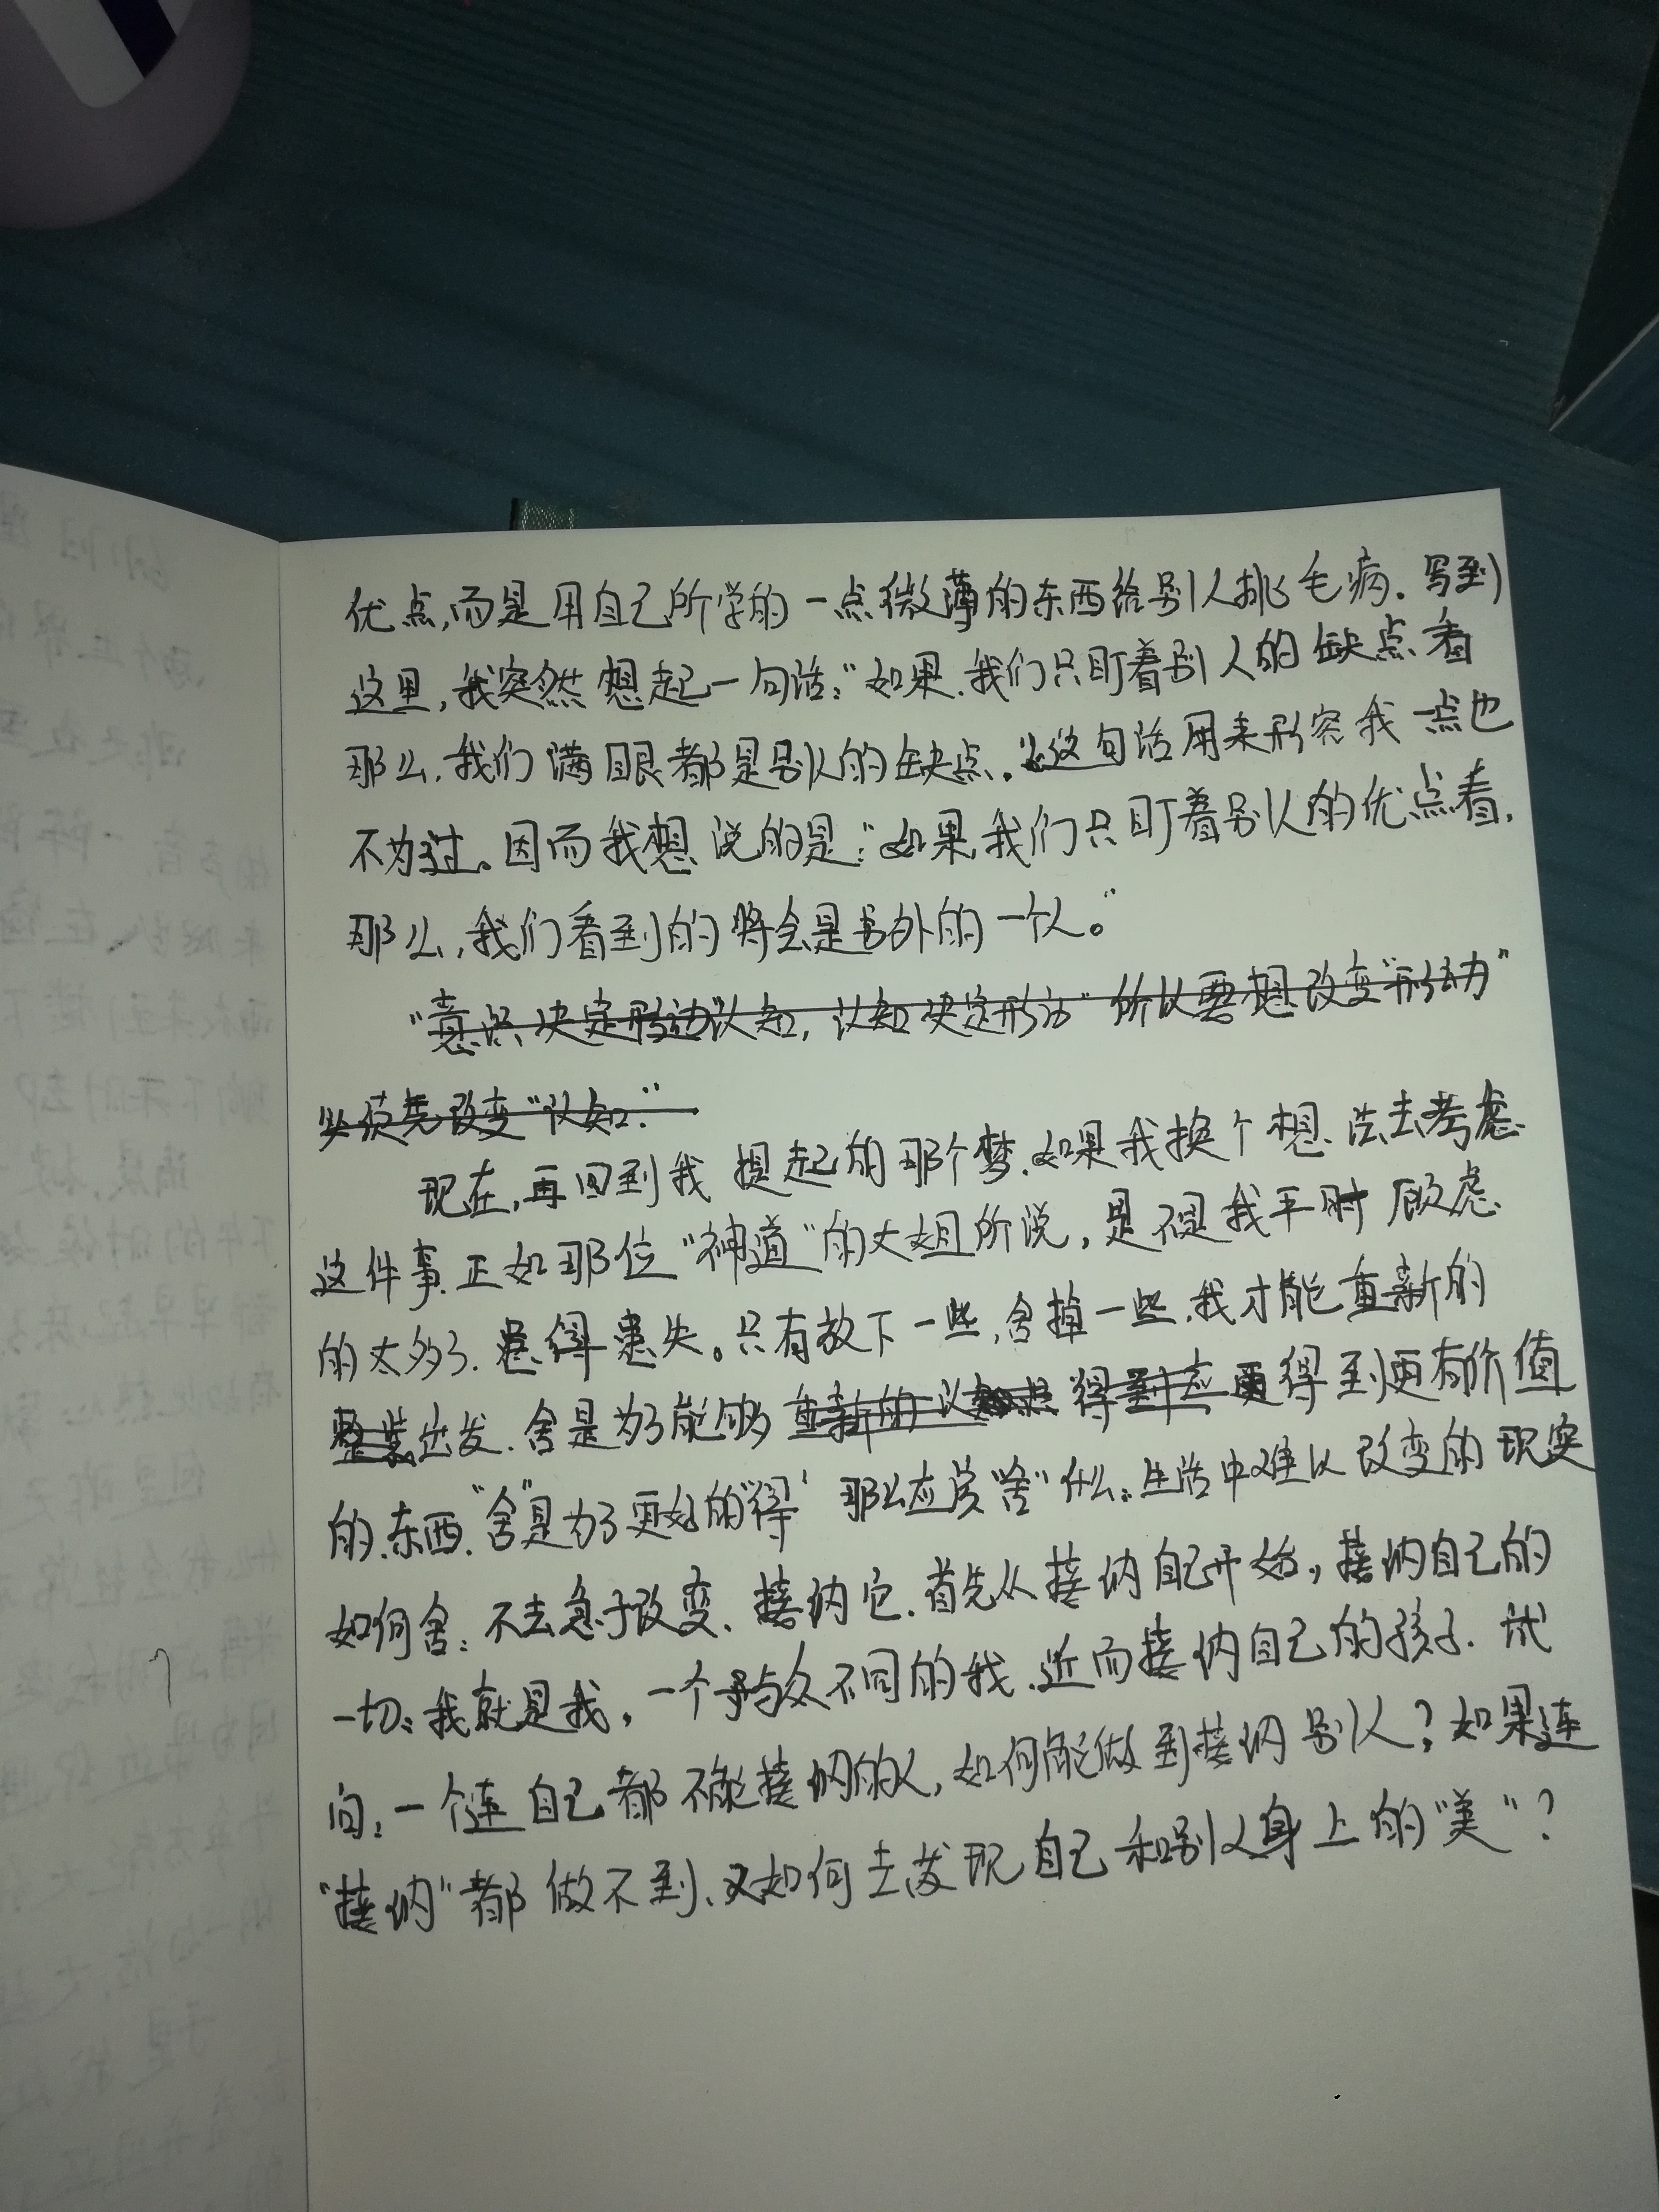 优点,而是用自己所学的一点微薄的东西给别人挑毛病.写到
这里,我突然想起一句话:"如果.我们只盯着别人的缺点看
那么.我们满眼都是别人的缺点."这句话用来形容我一点也
不为过。因而我想说的是:"如果我们只盯着别人的优点看.
那么,我们看到的将会是另外的一个人。"
"意识决定认知,认知决定形动"所以要想改变"形动"
必须先改变"认知."
现在,再回到我提起的那个梦.如果我换个想法去考虑
这件事.正如那位"神道"的大姐所说,是不是我平时顾虑
的太多了.患得患失。只有放下一些,舍掉一些.我才能重新的
整装出发.舍是为了能够重新的得到应更得到更有价值
的.东西."舍"是为了更好的"得"那么应该"舍"什么:生活中难以改变的现实
如何舍:不去急于改变、接纳它.首先从接纳自己开始,接纳自己的
一切:我就是我,一个与众不同的我.近而接纳自己的孩子.试
问:一个连自己都不能接纳的人,如何能做到接纳别人?如果连
"接纳"都做不到、又如何去发现自己和别人身上的"美"?